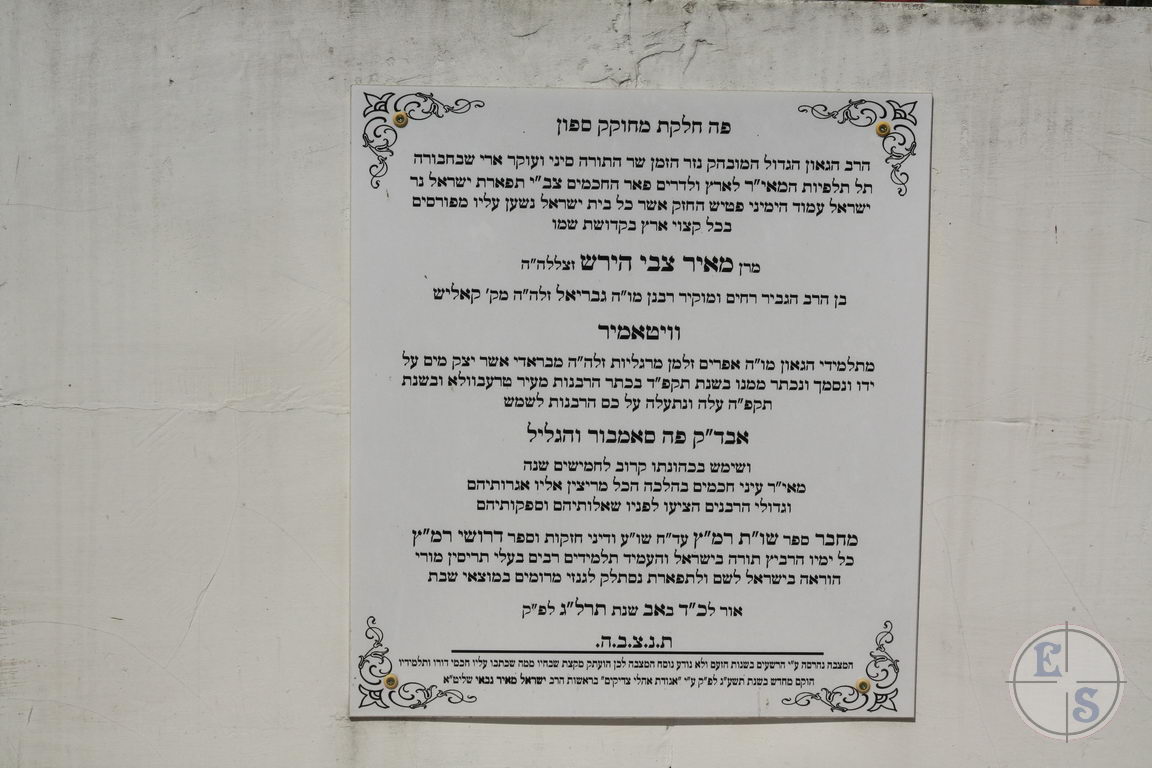 פה חלקת מחוקק ספון
הרב הגאון הגדול המובהק נזר הזמן שר התורה סיני ועוקר ארי שבחבורה
תל תלפיות המאי"ר לארץ ולדרים פאר החכמים צב"י תפארת ישראל נר
ישראל עמוד הימיני פטיש החזק אשר כל בית ישראל נשען עליו מפורסים
בכל קצוי ארץ בקדושת שמו
מרן מאיר צבי הירש זצללה"ה
בן הרב הגביר רחים ומוקיר רבנן מו"ה גבריאל זלה"ה מק' קאליש
וויטאמיר
מתלמידי הגאון מו"ה אפרים זלמן מרגליות זלה"ה מבראדי אשר יצק מים על
ידו ונסמך ונכתר ממנו בשנת תקפ"ד בכתר הרבנות מעיר טרעבוולא ובשנת
תקפ"ה עלה ונתעלה על כס הרבנות לשמש
אבד"ק פה סאמבור והגליל
ושימש בכהונתו קרוב לחמישים שנה
מאי"ר עיני חכמים בהלכה הכל מריצין אליו אגרותיהם
וגדולי הרבנים הציעו לפניו שאלותיהם וספקותיהם
מחבר ספר שו"ת רמ"ץ עד"ח שו"ע ודיני חזקות וספר דרושי רמ"ץ
כל ימיו הרביץ תורה בישראל והעמיד תלמידים רבים בעלי תריסין מורי
הוראה בישראל לשם ולתפארת נסתלק לגנזי מרומים במוצאי שבת
אור לכ"ד באב שנת תרל"ג לפ"ק
ת.נ.צ.ב.ה.
המצבה נהרסה ע"י הרשעים בשנות הזעם ולא נודע נוסח המצבה לכן הועתק מקצת שבחיו ממה שכתבו עליו חכמי דורו ותלמידיו
הוקם מחדש בשנת תשע"ג לפ"ק ע"י "אגודת אהלי צדיקים" בראשות הרב ישראל מאיר גבאי שליט"א
E S